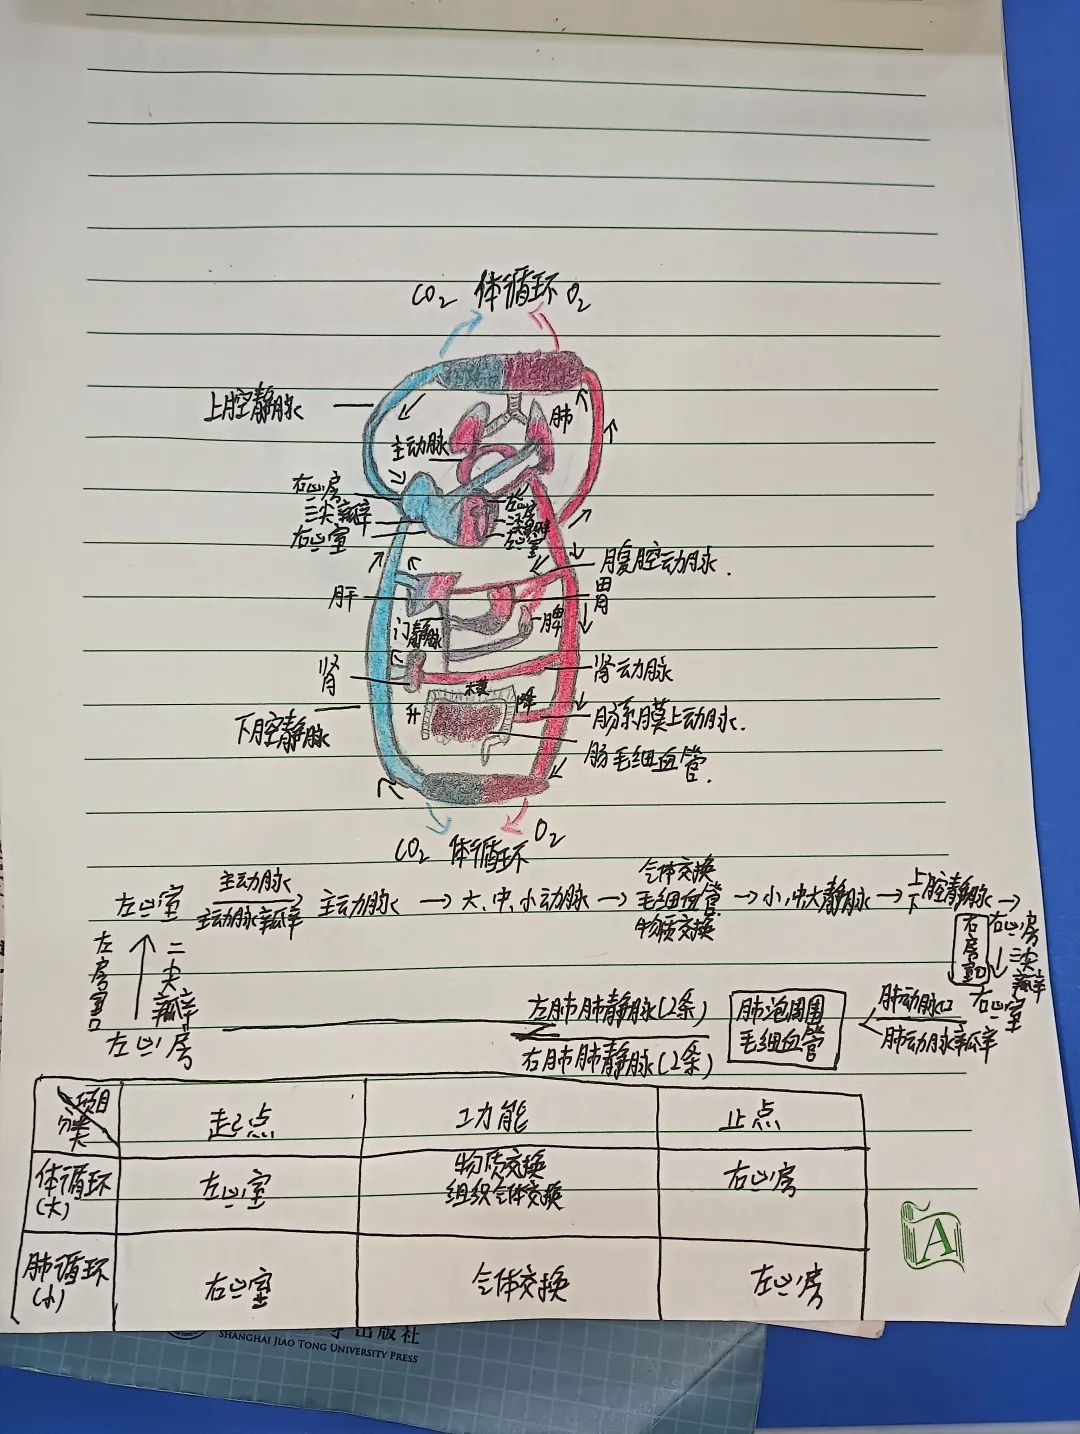 CO₂ 体循环 O₂
上腔静脉
肺
主动脉
右心房
三尖瓣
右心室
左心房
二尖瓣
左心室
腹腔动脉.
胃
肝
门静脉
脾
肾
肾动脉
横
升
降
下腔静脉
肠系膜上动脉.
肠毛细血管.
CO₂ 体循环 O₂
左心室 主动脉 主动脉瓣 主动脉 → 大、中、小动脉 → 气体交换 毛细血管 物质交换 → 小,中大静脉 → 上下腔静脉 →
右心房
右房室口
三尖瓣
右心室
左房室口
二尖瓣
左心房
左肺肺静脉(2条)
右肺肺静脉(2条)
肺泡周围
毛细血管
肺动脉口
肺动脉瓣
项目 分类 起点 功能 止点
体循环 (大) 左心室 物质交换 组织气体交换 右心房
肺循环 (小) 右心室 气体交换 左心房
A
出版社
SHANGHAI JIAO TONG UNIVERSITY PRESS